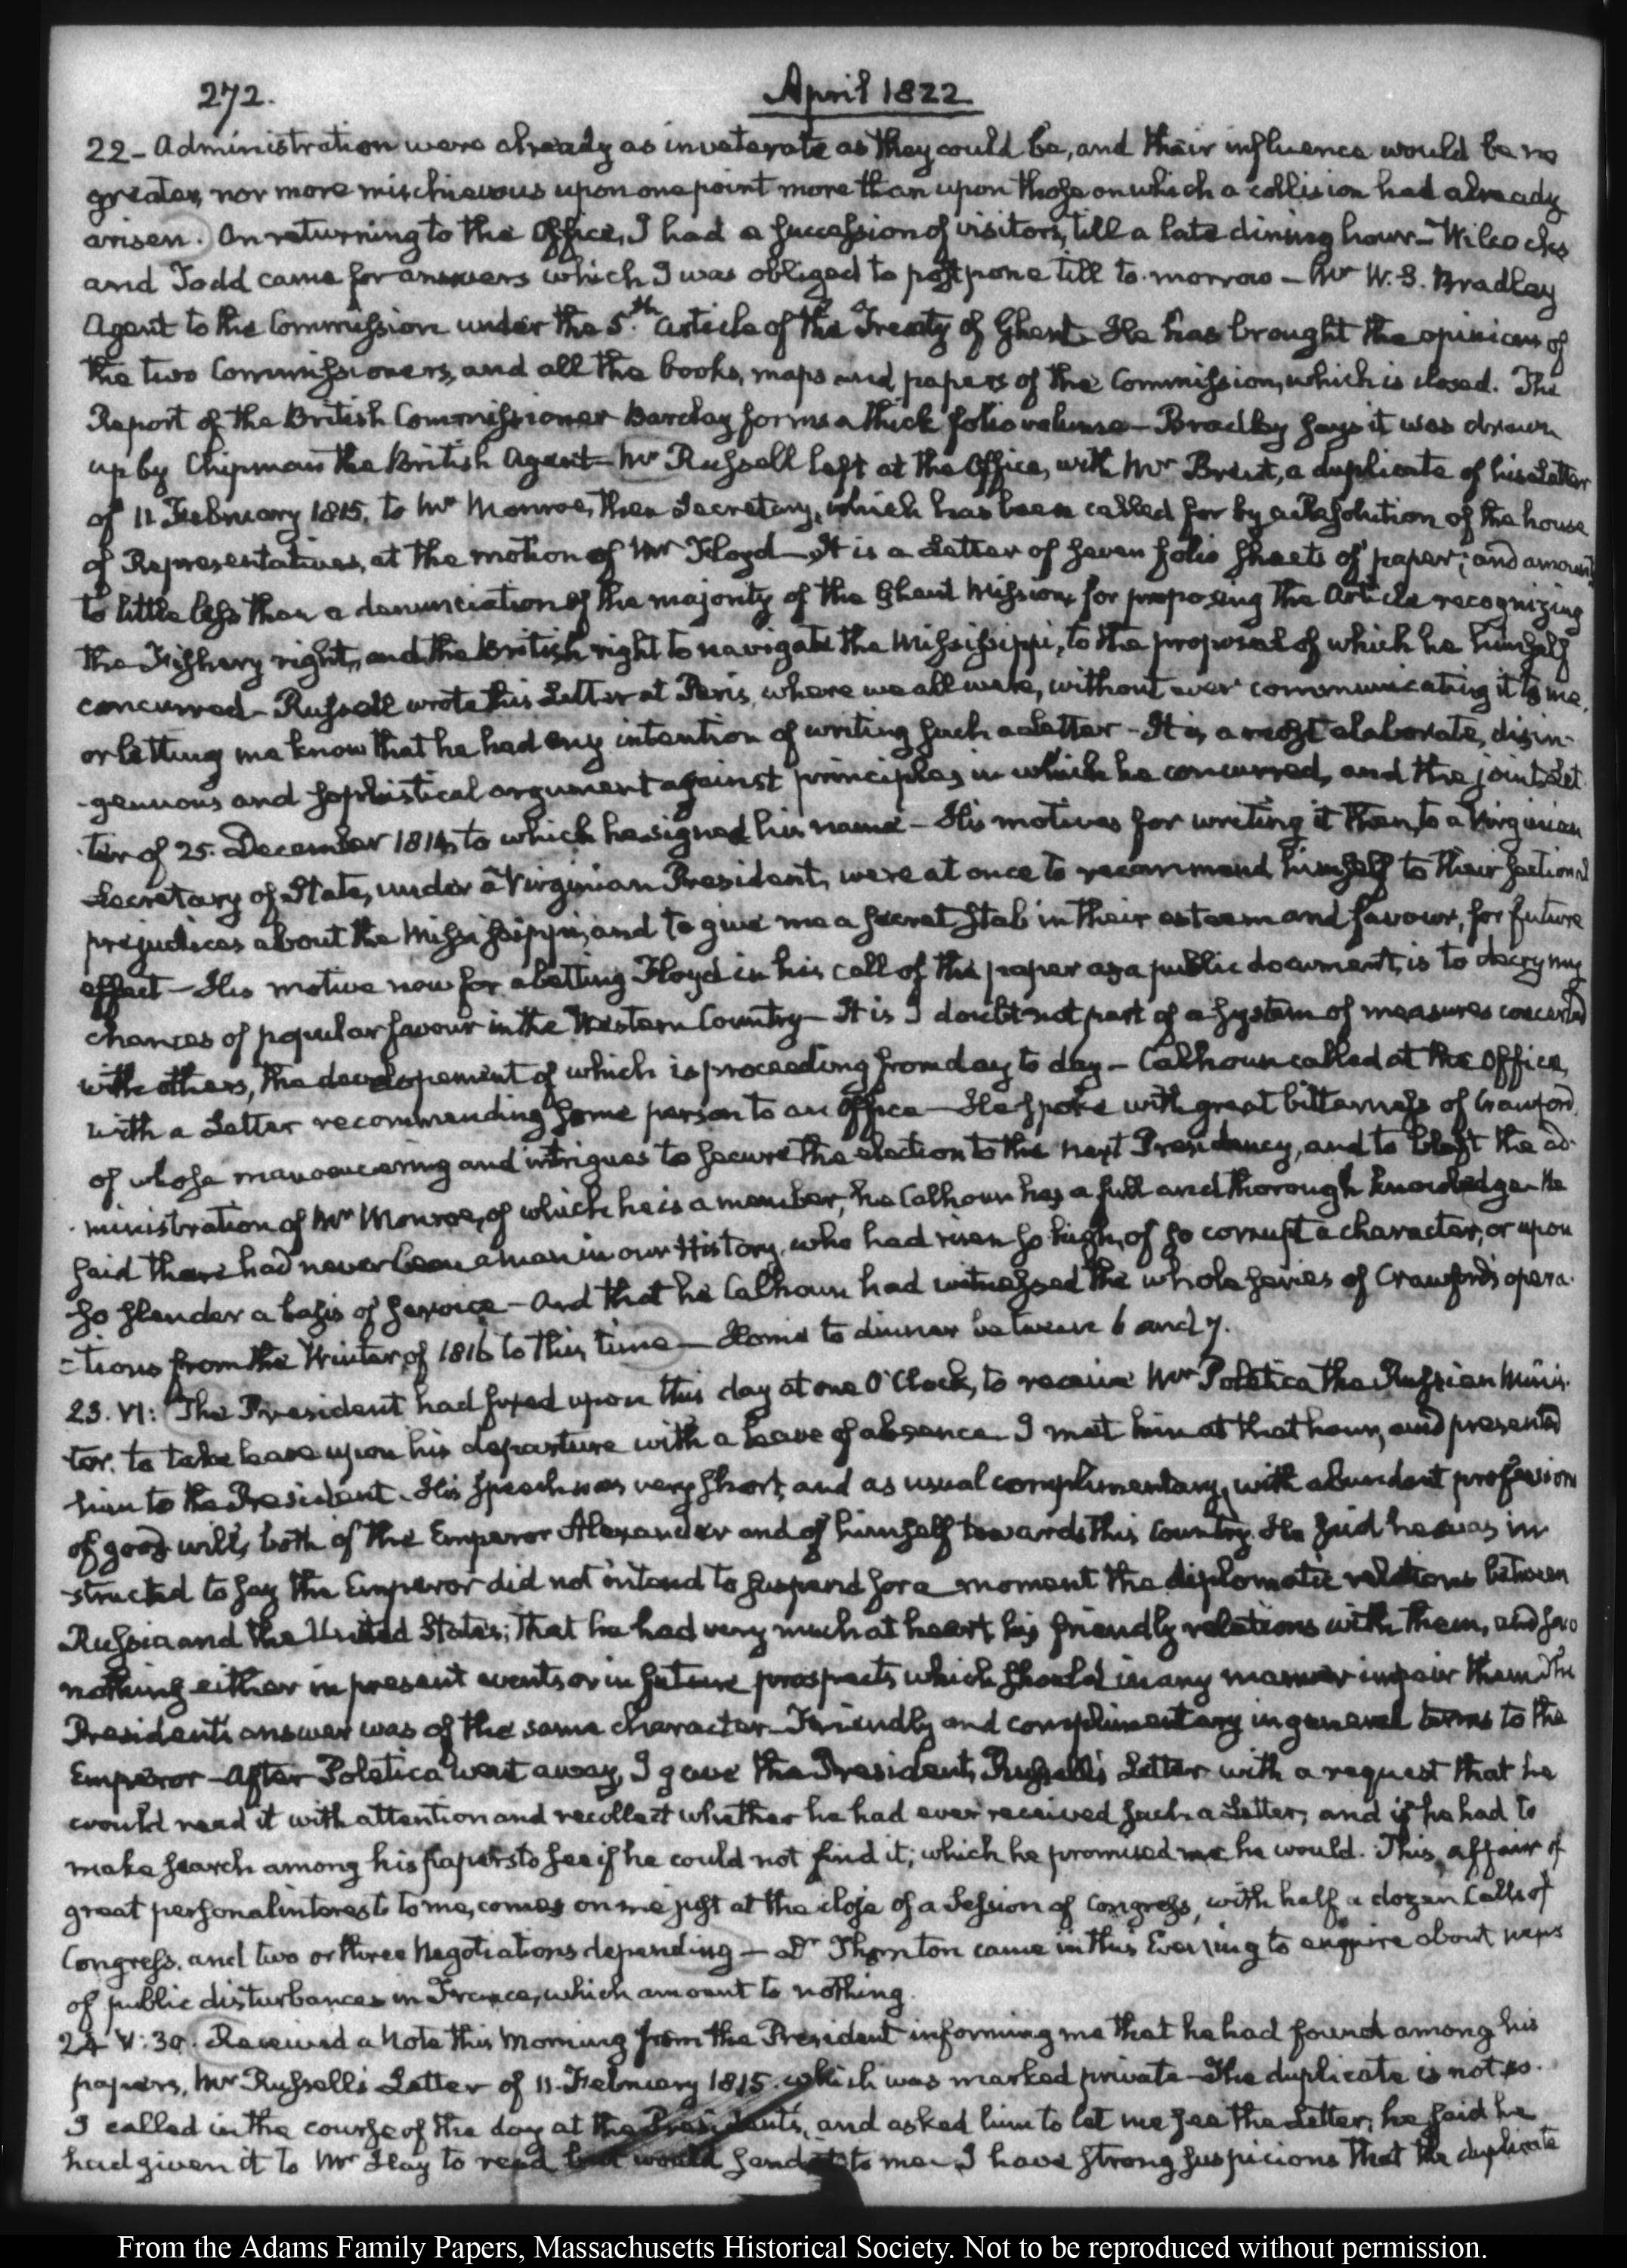 272.
April 1822
22 - Administration were already as inveterate as they could be, and their influence would be no
greater, nor more mischievous upon one point more than upon those on which a collision had already
arisen. On returning to the Office, I had a succession of visitors, till a late dining hour - Wilcocks
and Todd came for answers which I was obliged to postpone till to-morrow - Mr W. B. Bradley
Agent to the Commission under the 5.th Article of the Treaty of Ghent. He has brought the opinions of
the two Commissioners, and all the books, maps and papers of the Commission, which is closed. The
Report of the British Commissioner Barclay forms a thick folio volume - Bradley says it was drawn
up by Chipman the British Agent - Mr Russell left at the Office, with Mr Brent, a duplicate of his Letter
of 11 February 1815. to Mr Monroe, then Secretary, which has been called for by a Resolution of the house
of Representatives, at the motion of Mr Floyd - It is a Letter of seven folio sheets of paper; and amounts
to little less than a denunciation of the majority of the Ghent Mission for proposing the Article recognizing
the Fishery right, and the British right to navigate the Mississippi, to the proposal of which he himself
concurred - Russell wrote this Letter at Paris, where we all were, without ever communicating it to me,
or letting me know that he had any intention of writing such a Letter - It is a most elaborate, disin-
-genuous and sophistical argument against principles in which he concurred, and the joint Let-
-ter of 25. December 1814, to which he signed his name - His motives for writing it then, to a Virginian
Secretary of State, under a Virginian President, were at once to recommend himself to their sectional
prejudices about the Mississippi, and to give me a secret stab in their esteem and favour, for future
effect - His motive now for abetting Floyd in his call of the paper as a public document, is to decry my
chances of popular favour in the Western Country - It is I doubt not part of a system of measures concerted
with others, the developement of which is proceeding from day to day - Calhoun called at the Office,
with a Letter recommending some person to an Office - He spoke with great bitterness of Crawford,
of whose manoeuvering and intrigues to secure the election to the next Presidency, and to blast the ad-
-ministration of Mr Monroe, of which he is a member, he Calhoun has a full and thorough knowledge. He
said there had never been a man in our History, who had risen so high, of so corrupt a character, or upon
so slender a basis of service - And that he Calhoun had witnessed the whole series of Crawford's opera-
-tions from the Winter of 1816 to this time - Home to dinner between 6 and 7.
23. VI: The President had fixed upon this day at one O'Clock, to receive Mr Poletica the Russian Minis-
ter. to take leave upon his departure with a leave of absence. I met him at that hour, and presented
him to the President. His speech was very short, and as usual complimentary, with abundant professions
of good will, both of the Emperor Alexander and of himself towards this Country. He said he was in-
-structed to say the Emperor did not intend to suspend for a moment the diplomatic relations between
Russia and the United States; that he had very much at heart, his friendly relations with them, and saw
nothing either in present events or in future prospects which should in any manner impair them. The
President's answer was of the same character - Friendly and complimentary in general terms to the
Emperor - After Poletica went away, I gave the President, Russell's Letter with a request that he
would read it with attention and recollect whether he had ever received such a Letter; and if he had to
make search among his papers to see if he could not find it; which he promised me he would. This affair of
great personal interest to me, comes on me just at the close of a Session of Congress, with half a dozen Calls of
Congress, and two or three Negotiations depending - Dr Thornton came in this Evening to enquire about news
of public disturbances in France, which amount to nothing.
24 V:30. Received a Note this Morning from the President informing me that he had found among his
papers, Mr Russell's Letter of 11. February 1815. which was marked private - The duplicate is not so.
I called in the course of the day at the Presidents, and asked him to let me see the Letter; he said he
had given it to Mr Hay to read but would send it to me. I have strong suspicions that the duplicate
From the Adams Family Papers, Massachusetts Historical Society. Not to be reproduced without permission.